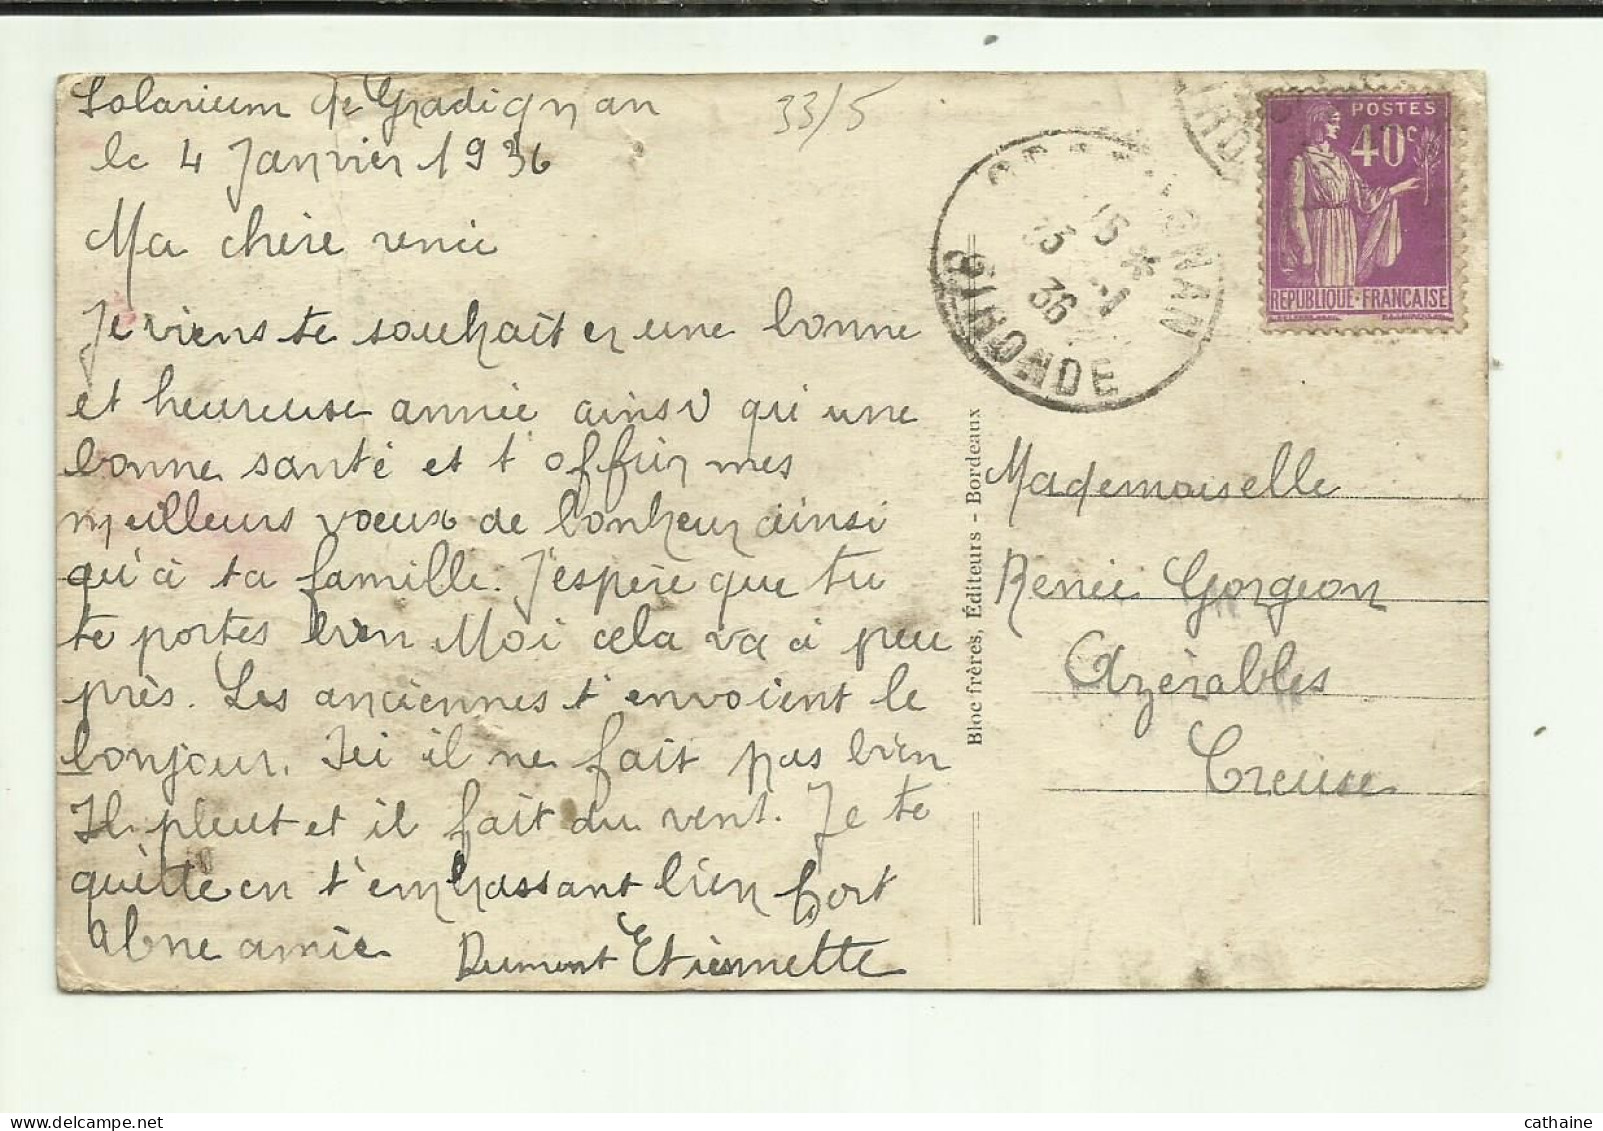 Solarium de Gradignan
le 4 Janvier 1936
33/5
Ma chère renée
Je viens te souhaiter une bonne
et heureuse année ainsi qui une
bonne santé et t'offrir mes
meilleurs voeux de bonheur ainsi
qu'à ta famille. J'espère que tu
te portes bien Moi cela va à peu
près. Les anciennes t'envoient le
bonjour. Ici il ne fait pas bien
Il pleut et il fait du vent. Je te
quitte en t'embrassant bien fort
amie Dumont Etiennette
GRADIGNAN
15 *
5 -1
36
GIRONDE
POSTES
40c
REPUBLIQUE·FRANÇAISE
Bloc frères, Éditeurs - Bordeaux
Mademoiselle
Renée Gorgeon
Azérables
Creuse
cathaine